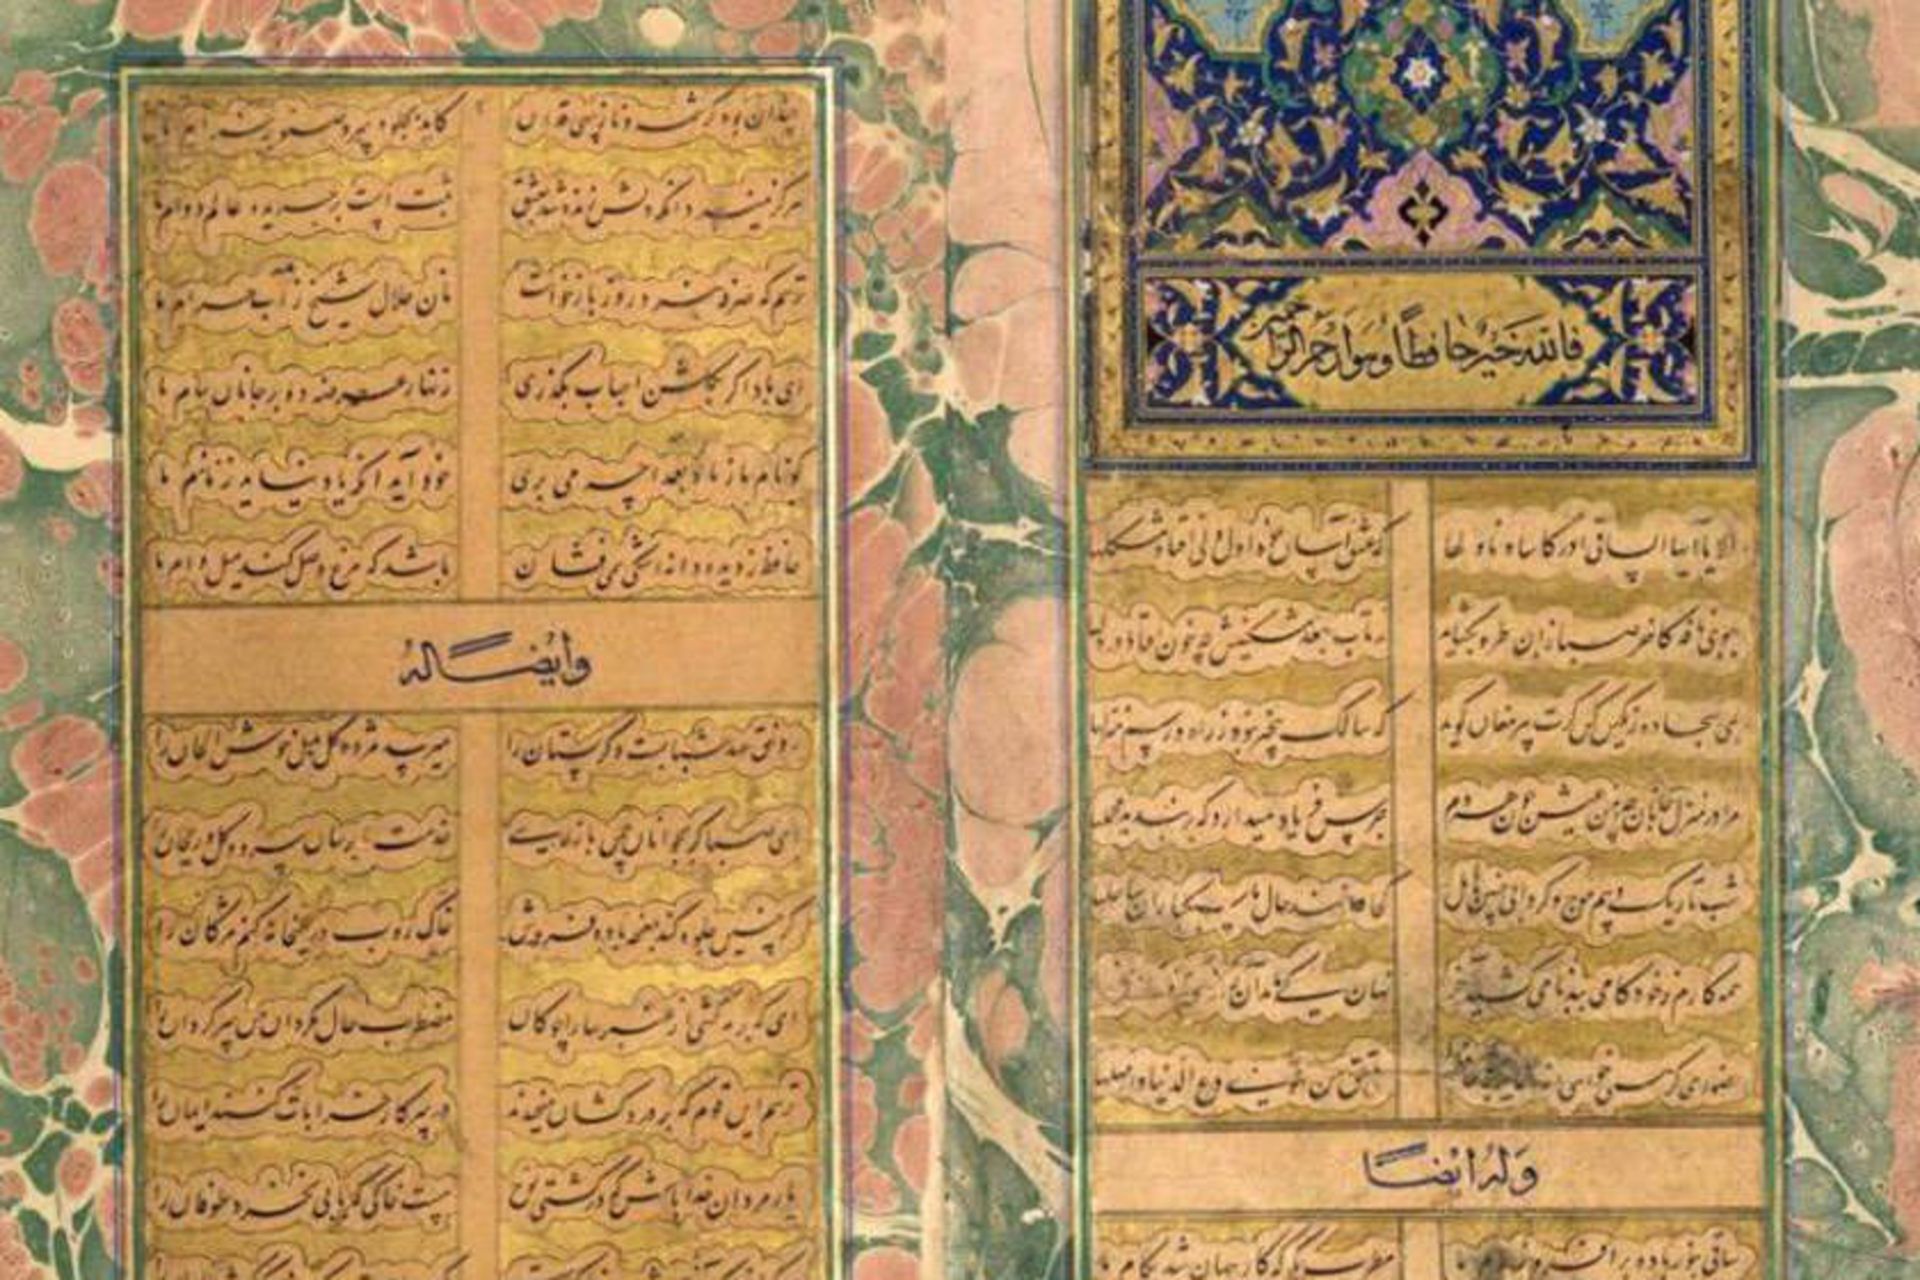 فالله خیر حافظا وهو ارحم الراحمین
الا یا ایها الساقی ادر کاسا و ناولها که عشق آسان نمود اول ولی افتاد مشکلها
ببوی نافه کاخر صبا زان طره بگشاید ز تاب جعد مشکینش چه خون افتاد در
بمی سجاده رنگین کن گرت پیر مغان گوید که سالک بیخبر نبود ز راه و رسم منزلها
مرا در منزل جانان چه امن عیش چون هر دم جرس فریاد میدارد که بربندید محملها
شب تاریک و بیم موج و گردابی چنین هایل کجا دانند حال ما سبکباران ساحلها
همه کارم ز خود کامی ببدنامی کشید آخر نهان کی ماند آن
حضوری گر همی خواهی من تهوی دع الدنیا و اهملها
وله ایضا
ساقی بنور باده برافروز جام ما مطرب بگو که کار جهان شد بکام ما
چندان بود کرشمه و ناز سهی قدان کاید بجلوه سرو صنوبر خرام ما
هرگز نمیرد آنکه دلش زنده شد بعشق ثبت است بر جریده عالم دوام ما
ترسم که صرفه نبرد روز بازخواست نان حلال شیخ ز آب حرام ما
ای باد اگر بگلشن احباب بگذری زنهار عرضه ده بر جانان پیام ما
گو نام ما ز یاد بعمدا چه می بری خود آید آنکه یاد نیاید ز نام ما
حافظ ز دیده دانه اشکی همی فشان باشد که مرغ وصل کند میل دام ما
وایضا له
رونق عهد شبابست دگر بستان را میرسد مژده گل بلبل خوش الحان را
ای صبا گر بجوانان چمن بازرسی خدمت ما برسان سرو و گل و ریحان را
گر چنین جلوه کند مغبچه باده فروش خاک روب در میخانه کنم مژگان را
ای که بر مه کشی از عنبر سارا چوگان مضطرب حال مگردان من سرگردان را
ترسم این قوم که بر دردکشان میخندند در سر کار خرابات کنند ایمان را
یار مردان خدا باش که در کشتی نوح هست خاکی که بآبی نخرد طوفان را